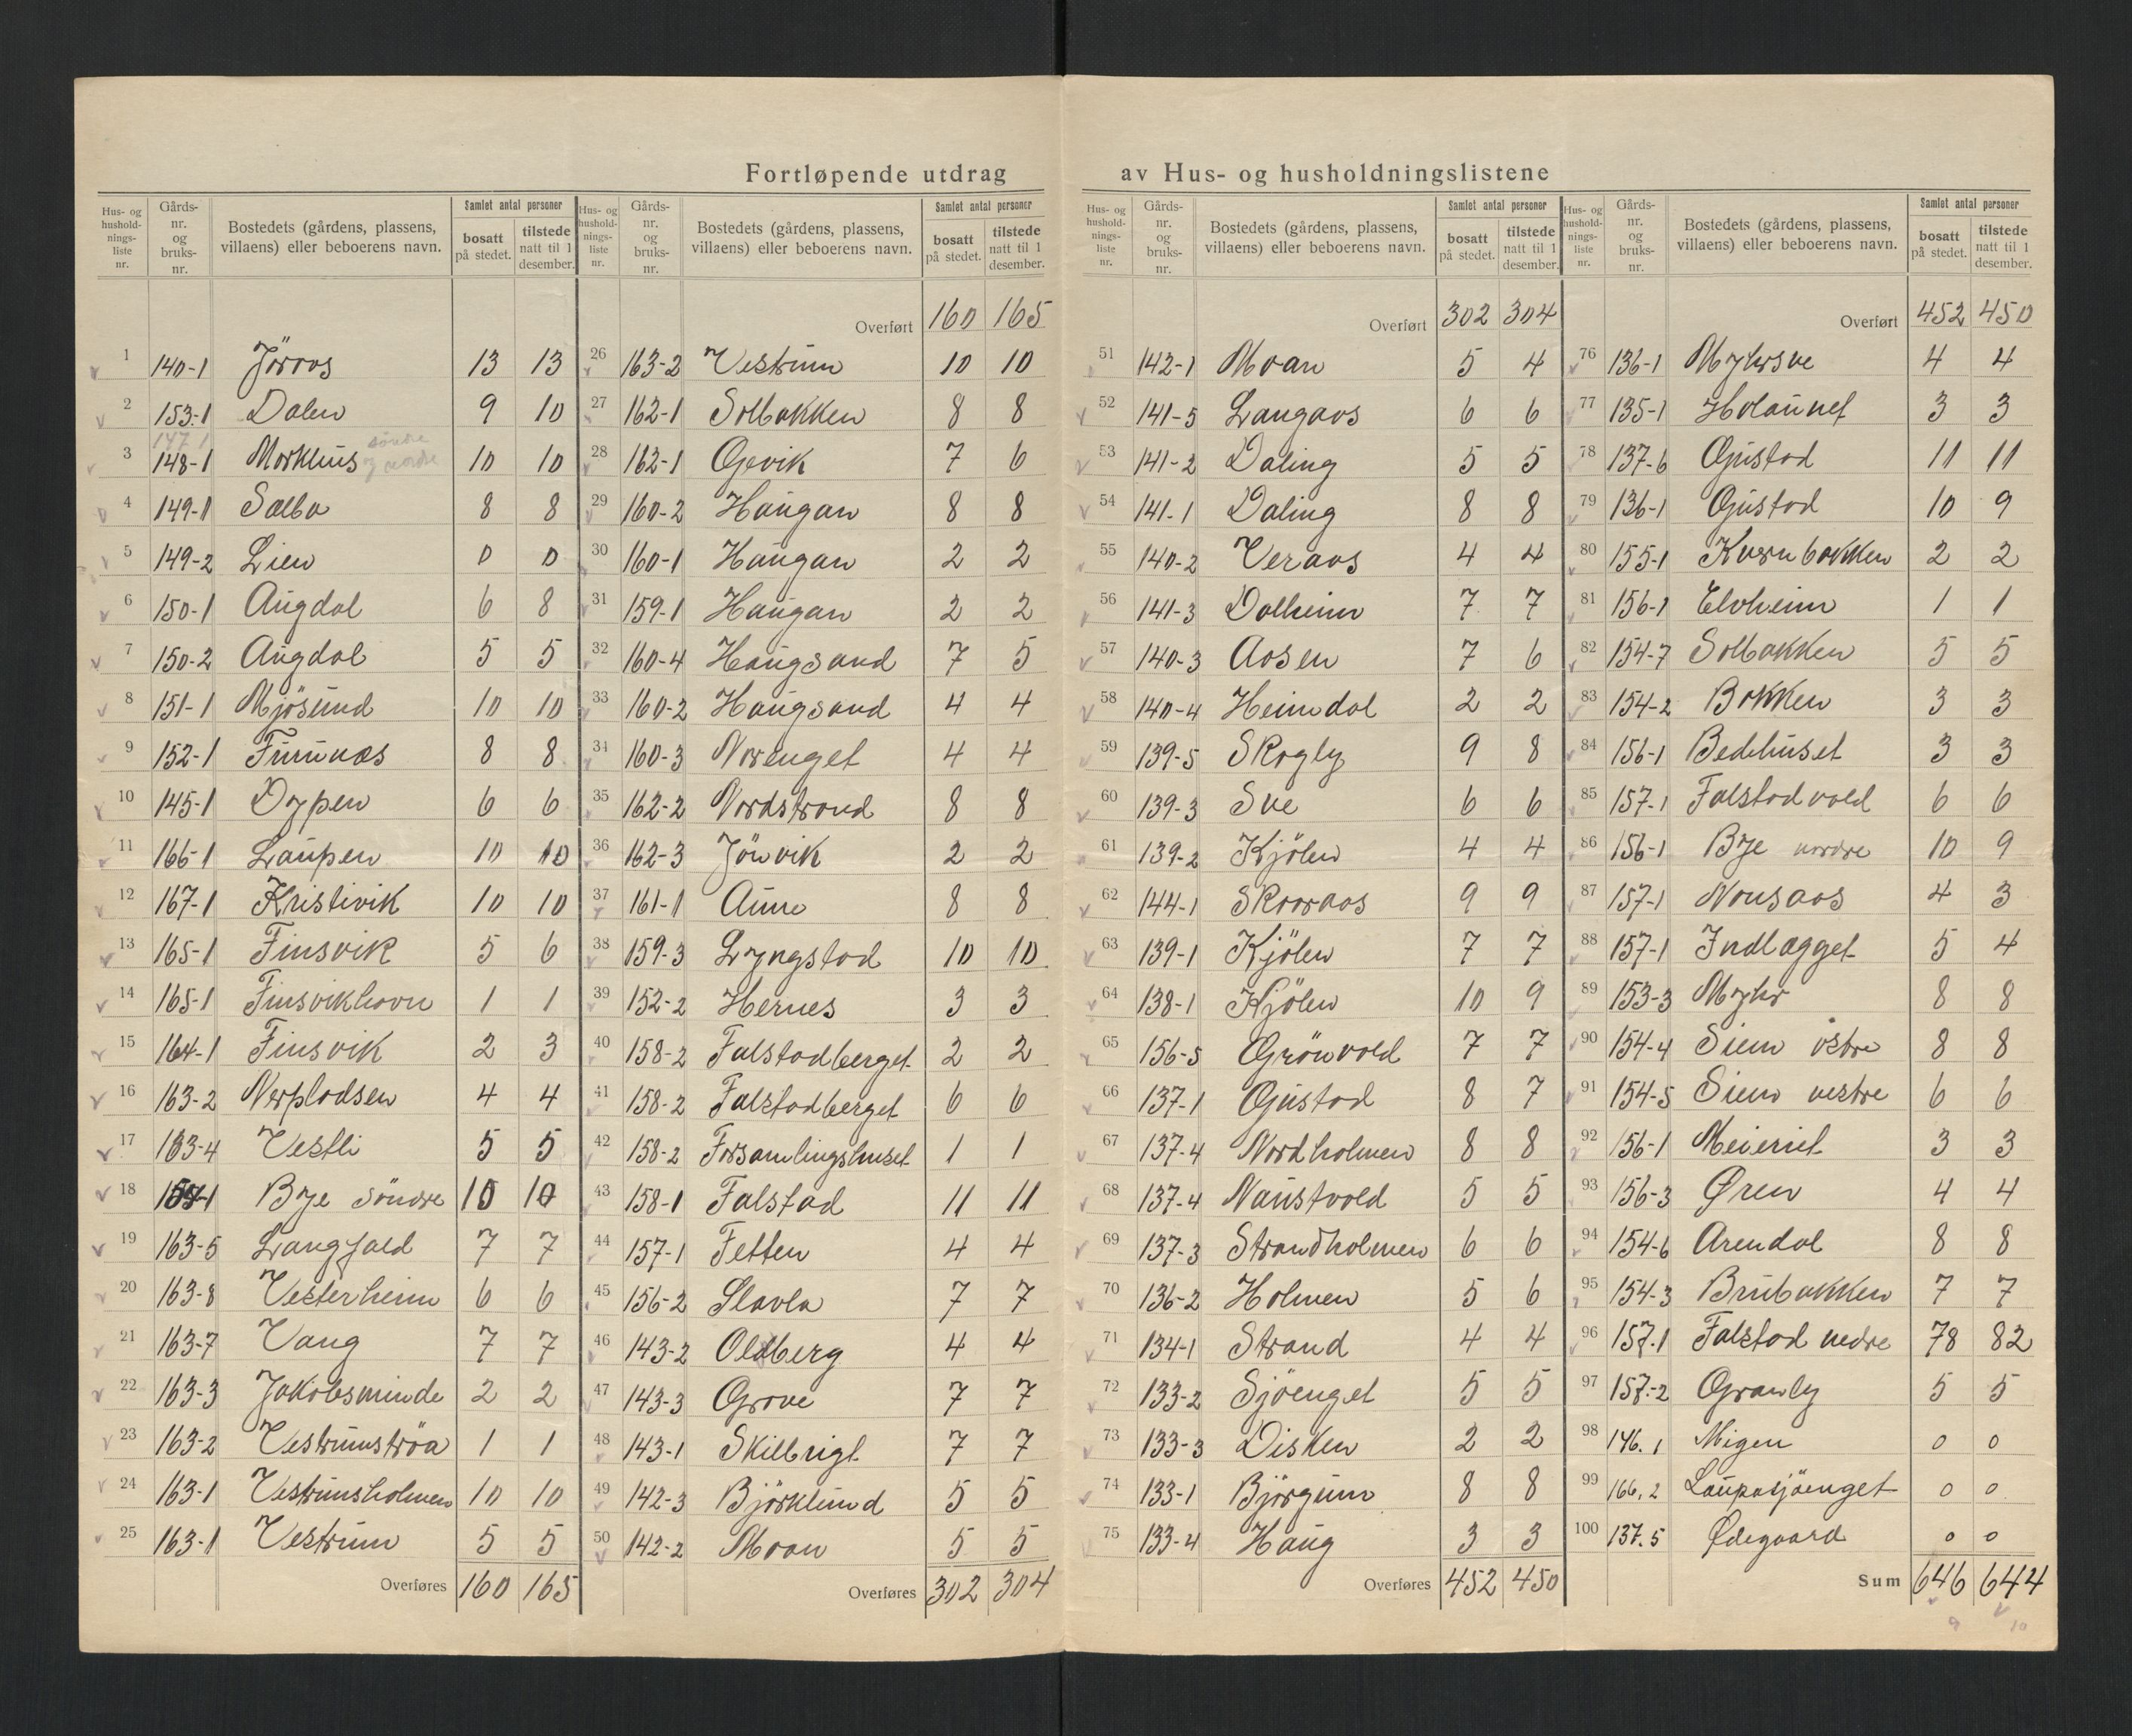 Fortløpende utdrag av Hus- og husholdningslistene
Hus- og husholdnings-liste nr. Gårds-nr. og bruks-nr. Bostedets (gårdens, plassens, villaens) eller beboerens navn. Samlet antal personer bosatt på stedet. tilstede natt til 1 desember.
1 140-1 Jöraas 13 13
2 153-1 Dalen 9 10
147 1 söndre
3 148-1 Morkhus 10 10
4 149-1 Salba 8 8
5 149-2 Lien 0 0
6 150-1 Augdal 6 8
7 150-2 Augdal 5 5
8 151-1 Mjösund 10 10
9 152-1 Furunæs 8 8
10 145-1 Dypen 6 6
11 166-1 Laupen 10 10
12 167-1 Kristivik 10 10
13 165-1 Finsvik 5 6
14 165-1 Finsvikhavn 1 1
15 164-1 Finsvik 2 3
16 163-2 Nerpladsen 4 4
17 163-4 Vestli 5 5
18 Bye söndre 10 10
19 163-5 Langfald 7 7
20 163-8 Vesterheim 6 6
21 163-7 Vang 7 7
22 163-3 Jakobsminde 2 2
23 163-2 Vestrumströa 1 1
24 163-1 Vestrumsholmen 10 10
25 163-1 Vestrum 5 5
Overføres 160 165
Hus- og husholdnings-liste nr. Gårds-nr. og bruks-nr. Bostedets (gårdens, plassens, villaens) eller beboerens navn. Samlet antal personer bosatt på stedet. tilstede natt til 1 desember.
Overført 160 165
26 163-2 Vestrum 10 10
27 162-1 Solbakken 8 8
28 162-1 Gjevik 7 6
29 160-2 Haugan 8 8
30 160-1 Haugan 2 2
31 159-1 Haugan 2 2
32 160-4 Haugsand 7 5
33 160-2 Haugsand 4 4
34 160-3 Norenget 4 4
35 162-2 Nordstrand 8 8
36 162-3 Jönvik 2 2
37 161-1 Aune 8 8
38 159-3 Lyngstad 10 10
39 152-2 Hernes 3 3
40 158-2 Falstadberget 2 2
41 158-2 Falstadberget 6 6
42 158-2 Forsamlingshuset 1 1
43 158-1 Falstad 11 11
44 157-1 Fetten 4 4
45 156-2 Slavla 7 7
46 143-2 Oldberg 4 4
47 143-3 Grove 7 7
48 143-1 Skilbrigt 7 7
49 142-3 Björklund 5 5
50 142-2 Moan 5 5
Overføres 302 304
Hus- og husholdnings-liste nr. Gårds-nr. og bruks-nr. Bostedets (gårdens, plassens, villaens) eller beboerens navn. Samlet antal personer bosatt på stedet. tilstede natt til 1 desember.
Overført 302 304
51 142-1 Moan 5 4
52 141-5 Langaas 6 6
53 141-2 Daling 5 5
54 141-1 Daling 8 8
55 140-2 Veraas 4 4
56 141-3 Dalheim 7 7
57 140-3 Aasen 7 6
58 140-4 Heimdal 2 2
59 139-5 Skogly 9 8
60 139-3 Sve 6 6
61 139-2 Kjölen 4 4
62 144-1 Skoraas 9 9
63 139-1 Kjölen 7 7
64 138-1 Kjölen 10 9
65 156-5 Grönvold 7 7
66 137-1 Gjustad 8 7
67 137-4 Nordholmen 8 8
68 137-4 Naustvold 5 5
69 137-3 Strandholmen 6 6
70 136-2 Holmen 5 6
71 134-1 Strand 4 4
72 133-2 Sjöenget 5 5
73 133-3 Disken 2 2
74 133-1 Björgum 8 8
75 133-4 Haug 3 3
Overføres 452 450
Hus- og husholdnings-liste nr. Gårds-nr. og bruks-nr. Bostedets (gårdens, plassens, villaens) eller beboerens navn. Samlet antal personer bosatt på stedet. tilstede natt til 1 desember.
Overført 452 450
76 136-1 Myhrsve 4 4
77 135-1 Holaunet 3 3
78 137-6 Gjustad 11 11
79 136-1 Gjustad 10 9
80 155-1 Kvernbakken 2 2
81 156-1 Elvheim 1 1
82 154-7 Solbakken 5 5
83 154-2 Bakken 3 3
84 156-1 Bedehuset 3 3
85 157-1 Falstadvald 6 6
86 156-1 Bye nordre 10 9
87 157-1 Nonsaas 4 3
88 157-1 Indlægget 5 4
89 153-3 Myhr 8 8
90 154-4 Siem östre 8 8
91 154-5 Siem vestre 6 6
92 156-1 Meieriet 3 3
93 156-3 Øren 4 4
94 154-6 Arendal 8 8
95 154-3 Brubakken 7 7
96 157.1 Falstad nedre 78 82
97 157-2 Granly 5 5
98 146.1 Migen 0 0
99 166.2 Laupasjöenget 0 0
100 137.5 Ødegaard 0 0
Sum 646 644
9 10